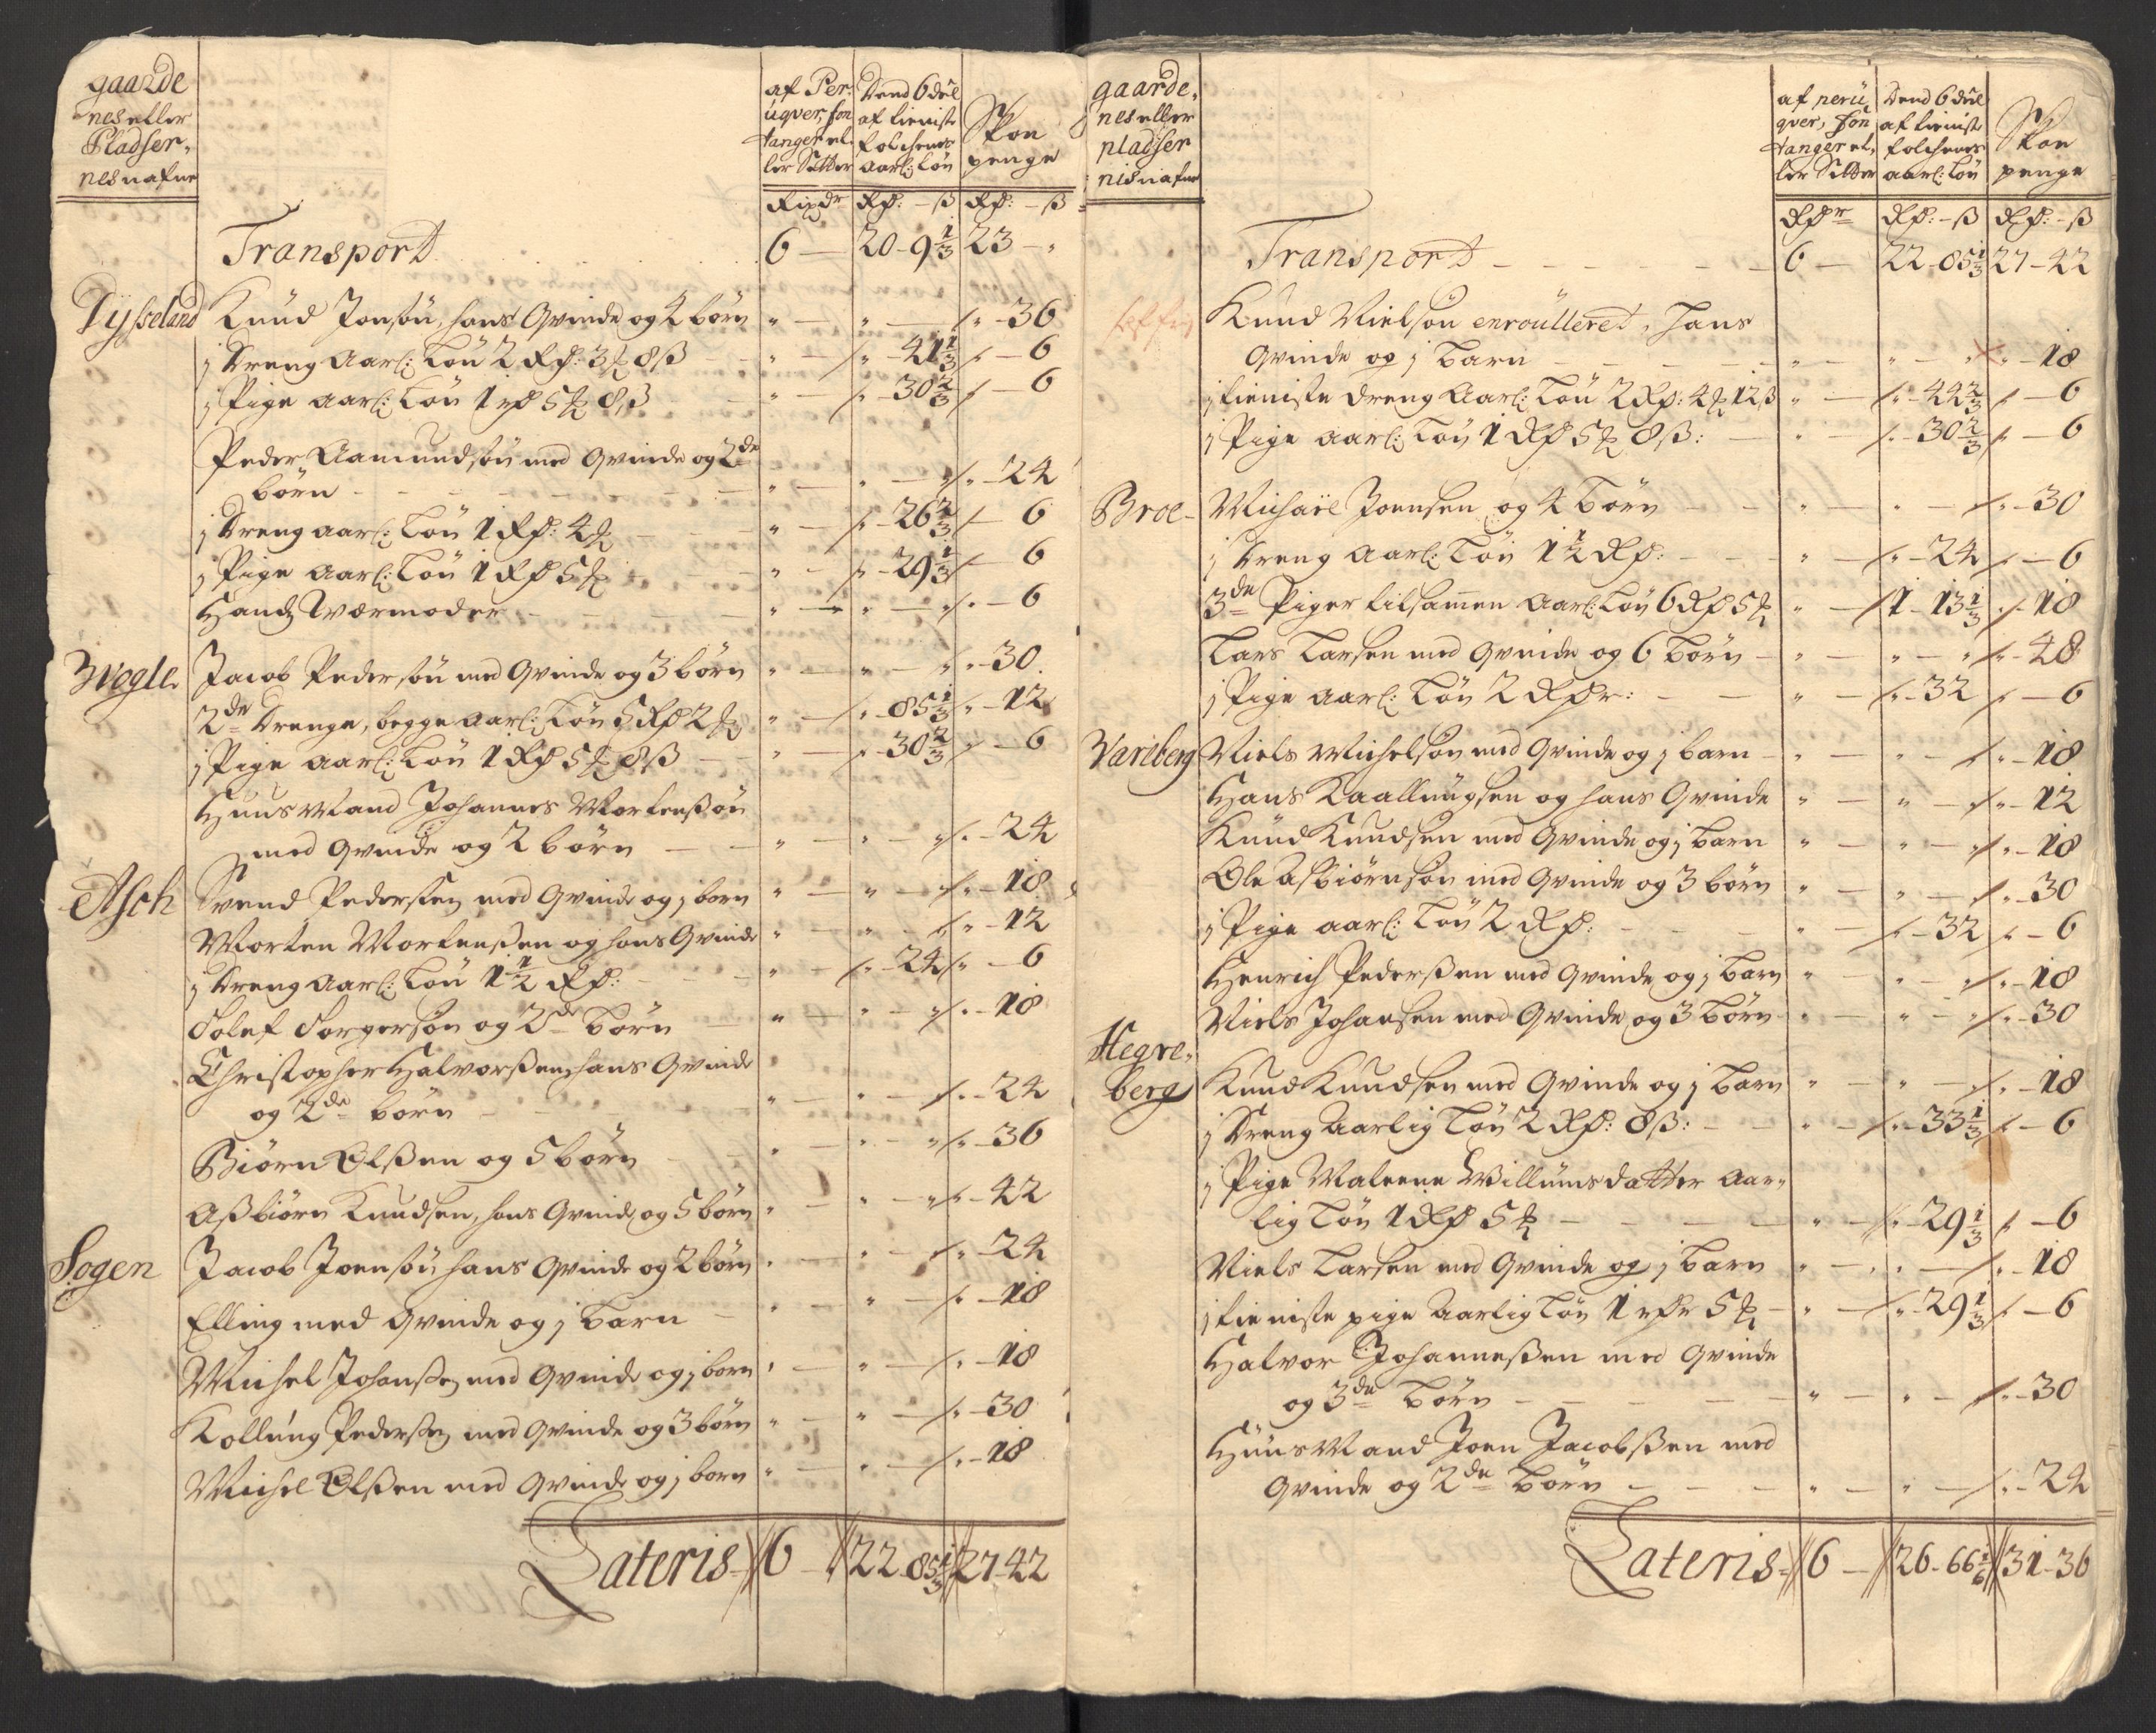 gaarde
nes eller
Pladser,
nes nafne
af Per:
uqver, fon
tanger el.
ler Sætter
Dend 6 deel
af tieniste
folchenes
aarl: Løn
Skoe
penge
Rixdr Rd: - ß Rd: - ß
Transport 6 — 20 - 9 1/3 23 - "
Dysseland Knud Jonsøn, hans Qvinde og 4 børn " — " — " - 36
j Dreng aarl: Løn 2 Rd: 3 ꝑ 8 ß " — " - 41 1/3 " - 6
j Pige aarl: Løn 1 rd 5 ꝑ 8 ß " — " - 30 2/3 " - 6
Peder Aamundsøn med Qvinde og 2de
børn " — " — " - 24
j Dreng aarl: Løn 1 Rd: 4 ꝑ " — " - 26 2/3 " - 6
j Pige aarl: Løn 1 Rd 5 ꝑ " — " - 29 1/3 " - 6
Hands Værmoder " — " — " - 6
Wogle Jacob Pedersøn med Qvinde og 3 børn " — " — " - 30
2de Drenge, begge aarl: Løn 5 Rd 2 ꝑ " — " - 85 1/3 " - 12
j Pige aarl: Løn 1 Rd 5 ꝑ 8 ß " — " - 30 2/3 " - 6
Huusmand Johannes Mortensøn
med Qvinde og 2 børn " — " — " - 24
Asch Svend Pedersen med Qvinde og j barn " — " — " - 18
Morten Mortensen og hans Qvinde " — " — " - 12
j Dreng aarl: Løn 1 1/2 Rd: " — " - 24 " - 6
Tolef Torgersøn og 2de børn " — " — " - 18
Christopher Halvorsen, hans Qvinde
og 2de børn " — " — " - 24
Biørn Olsen og 5 børn " — " — " - 36
Asbiørn Knudsen, hans Qvinde og 5 børn " — " — " - 42
Sogen Jacob Joensøn hans Qvinde og 2 børn " — " — " - 24
Elling med Qvinde og j barn " — " — " - 18
Michel Johansen med Qvinde og j barn " — " — " - 18
Kollung Pedersen med Qvinde og 3 børn " — " — " - 30
Michel Olsen med Qvinde og j barn " — " — " - 18
Lateris 6 — 22 - 85 1/3 27 - 42
gaarde,
nes eller
pladser
nes nafne
af peru
qver, fon
tanger el,
ler Sætter
Dend 6 deel
af tieniste
folchenes
aarl: Løn
Skoe
penge
Rdr Rd: - ß Rd: - ß
Transport 6 — 22 - 85 1/3 27 - 42
Knud Nielsøn enroulleret, hans
Qvinde og j barn " — " — " - 18
j tieniste dreng aarl: Løn 2 Rd: 4 ꝑ 12 ß " — " - 44 2/3 " - 6
j Pige aarl: Løn 1 Rd 5 ꝑ 8 ß: " — " - 30 2/3 " - 6
Broe Michael Joensen og 4 børn " — " — " - 30
j Dreng aarl: Løn 1 1/2 Rd: " — " - 24 " - 6
3de Piger tilsamen aarl: Løn 6 Rd 5 ꝑ " — 1 - 13 1/3 " - 18
Lars Larsen med Qvinde og 6 børn " — " — " - 48
j Pige aarl: Løn 2 Rdr: " — " - 32 " - 6
Vareberg Niels Michelsøn med Qvinde og j barn " — " — " - 18
Hans Kaallungsen og hans Qvinde " — " — " - 12
Knud Knudsen med Qvinde og j barn " — " — " - 18
Ole Asbiørnsøn med Qvinde og 3 børn " — " — " - 30
j Pige aarl: Løn 2 Rd: " — " - 32 " - 6
Henrich Pedersen med Qvinde og j barn " — " — " - 18
Niels Johansen med Qvinde og 3 børn " — " — " - 30
Hegre,
berg Knud Knudsen med Qvinde og j barn " — " — " - 18
j Dreng aarlig Løn 2 Rd: 8 ß: " — " - 33 1/3 " - 6
j Pige Maleene Willumsdatter aar,
lig Løn 1 Rd 5 ꝑ " — " - 29 1/3 " - 6
Niels Larsen med Qvinde og j barn " — " — " - 18
j tieniste pige aarlig Løn 1 rdr 5 ꝑ " — " - 29 1/3 " - 6
Halvor Johannesen med Qvinde
og 3de børn " — " — " - 30
Huusmand Joen Jacobsen med
Qvinde og 2de børn " — " — " - 24
Lateris 6 — 26 - 66 1/6 31 - 36